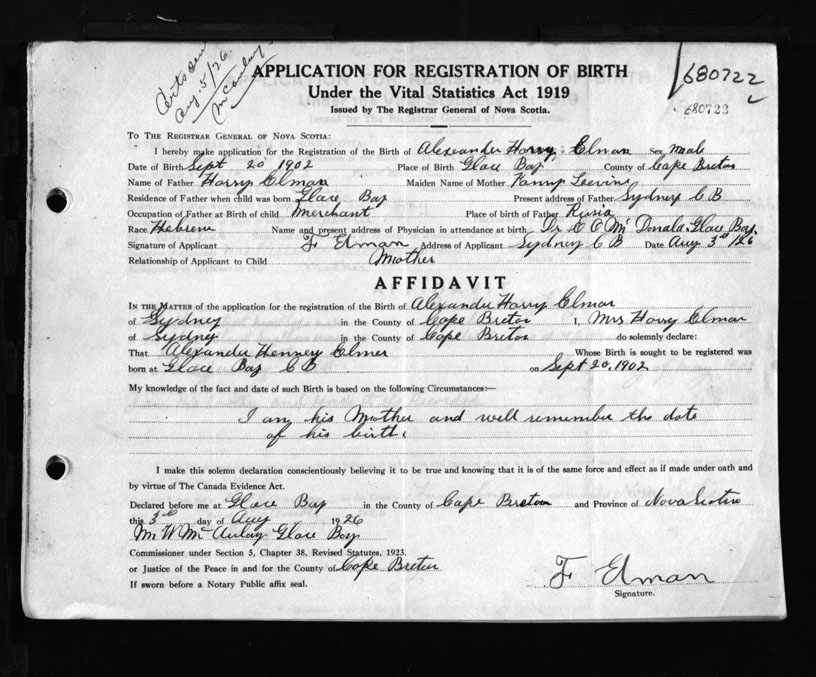 Aug. 5/26.
McAulay
680722
680722
APPLICATION FOR REGISTRATION OF BIRTH
Under the Vital Statistics Act 1919
Issued by The Registrar General of Nova Scotia.
TO THE REGISTRAR GENERAL OF NOVA SCOTIA:
I hereby make application for the Registration of the Birth of Alexander Harry Elman Sex Male
Date of Birth Sept 20 1902 Place of Birth Glace Bay County of Cape Breton
Name of Father Harry Elman Maiden Name of Mother Fanny Leevine
Residence of Father when child was born Glace Bay Present address of Father Sydney C B
Occupation of Father at Birth of child Merchant Place of birth of Father Rusia
Race Hebrew Name and present address of Physician in attendance at birth Dr McDonald. Glace Bay.
Signature of Applicant F Elman Address of Applicant Sydney C B Date Aug 3rd 1926
Relationship of Applicant to Child Mother
AFFIDAVIT
IN THE MATTER of the application for the registration of the Birth of Alexander Harry Elman
of Sydney in the County of Cape Breton I, Mrs Harry Elman
of Sydney in the County of Cape Breton do solemnly declare:
That Alexander Henney Elmer Whose Birth is sought to be registered was
born at Glace Bay C B on Sept 20, 1902
My knowledge of the fact and date of such Birth is based on the following Circumstances:—
I am his Mother and well remember the date
of his birth.
I make this solemn declaration conscientiously believing it to be true and knowing that it is of the same force and effect as if made under oath and
by virtue of The Canada Evidence Act.
Declared before me at Glace Bay in the County of Cape Breton and Province of Nova Scotia
this 3rd day of Aug 1926
McAulay Glace Bay
Commissioner under Section 5, Chapter 38, Revised Statutes, 1923.
or Justice of the Peace in and for the County of Cape Breton
If sworn before a Notary Public affix seal.
F Elman
Signature.